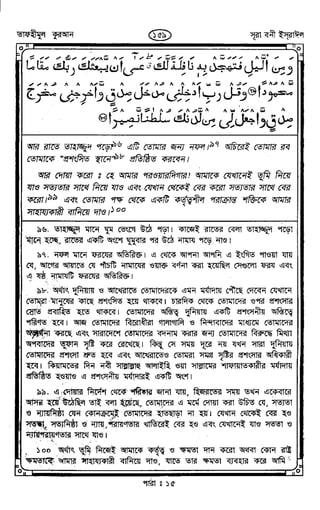 তাফহীমুল কুরআন
১৫৯
সূরা বনী ইসরাঈল
وَمِنَ الَّيْلِ فَتَهَجَّدْ بِهِ نَافِلَةً لَّكَ عَسٰى أَنْ يَّبْعَثَكَ رَبُّكَ مَقَامًا
مَّحْمُوْدًا وَقُلْ رَّبِّ أَدْخِلْنِيْ مُدْخَلَ صِدْقٍ وَّأَخْرِجْنِيْ مُخْرَجَ
صِدْقٍ وَّاجْعَلْ لِّيْ مِنْ لَّدُنْكَ سُلْطٰنًا نَّصِيْرًا
আর রাতে তাহাজ্জুদ পড়ো৯৬ এটি তোমার জন্য নফল।৯৭ অচিরেই তোমার রব
তোমাকে "প্রশংসিত স্থানে৯৮ প্রতিষ্ঠিত করবেন।
আর দোয়া করো : হে আমার পরওয়ারদিগার! আমাকে যেখানেই তুমি নিয়ে
যাও সত্যতার সাথে নিয়ে যাও এবং যেখান থেকেই বের করো সত্যতার সাথে বের
করো।৯৯ এবং তোমার পক্ষ থেকে একটি কর্তৃত্বশীল পরাক্রান্ত শক্তিকে আমার
সাহায্যকারী বানিয়ে দাও।১০০
৯৬. তাহাজ্জুদ মানে ঘুম ভেংগে উঠে পড়া। কাজেই রাতের বেলা তাহাজ্জুদ পড়ো
মানে হচ্ছে, রাতের একটি অংশে ঘুমুবার পর উঠে নামায পড়ে নাও।
৯৭. নফল মানে ফরযের অতিরিক্ত। এ থেকে আপনা আপনি এ ইংগিত পাওয়া যায়
যে, আগের আয়াতে যে পাঁচটি নামাযের ওয়াক্ত বর্ণনা করা হয়েছিল সেগুলো ফরয এবং
এ ষষ্ঠ নামাযটি ফরযের অতিরিক্ত।
৯৮. অর্থাৎ দুনিয়ায় ও আখেরাতে তোমাদেরকে এমন মর্যাদায় পৌঁছে দেবেন যেখানে
তোমরা মানুষের কাছে প্রশংসিত হয়ে থাকবে। চারদিক থেকে তোমাদের ওপর প্রশংসার
স্রোত প্রবাহিত হতে থাকবে। তোমাদের অস্তিত্ব দুনিয়ায় একটি প্রশংসনীয় অস্তিত্বে
পরিণত হবে। আজ তোমাদের বিরোধীরা গালাগালি ও নিন্দাবাদের মাধ্যমে তোমাদের
অভ্যর্থনা করছে এবং সারাদেশে তোমাদের বদনাম করার জন্য তোমাদের বিরুদ্ধে মিথ্যা
অপবাদের তুফান সৃষ্টি করে রেখেছে। কিন্তু সে সময় দূরে নয় যখন সারা দুনিয়ায়
তোমাদের প্রশংসা শ্রুত হবে এবং আখেরাতেও তোমরা সমগ্র সৃষ্টির প্রশংসার অধিকারী
হবে। কিয়ামতের দিন নবী সাল্লাল্লাহু আলাইহি ওয়া সাল্লামের শাফায়াতকারীর মর্যাদায়
প্রতিষ্ঠিত হওয়াও এ প্রশংসনীয় মর্যাদারই একটি অংশ।
৯৯. এ দোয়ার নির্দেশ থেকে পরিষ্কার জানা যায়, হিজরতের সময় তখন একেবারে
আসন্ন হয়ে উঠেছিল তাই বলা হয়েছে, তোমাদের এ মর্মে দোয়া করা উচিত যে, সত্যতা
ও ন্যায়নিষ্ঠা যেন কোনক্রমেই তোমাদের হাতছাড়া না হয়। যেখান থেকেই বের হও
সততা, সত্যনিষ্ঠা ও ন্যায়পরায়ণতার খাতিরেই বের হও এবং যেখানেই যাও সততা ও
ন্যায়পরায়ণতার সাথে যাও।
১০০ অর্থাৎ তুমি নিজেই আমাকে কর্তৃত্ব ও ক্ষমতা দান করো অথবা কোন রাষ্ট্র
ক্ষমতাকে আমার সাহায্যকারী বানিয়ে দাও, যাতে তার ক্ষমতা ব্যবহার করে আমি
পারা : ১৫